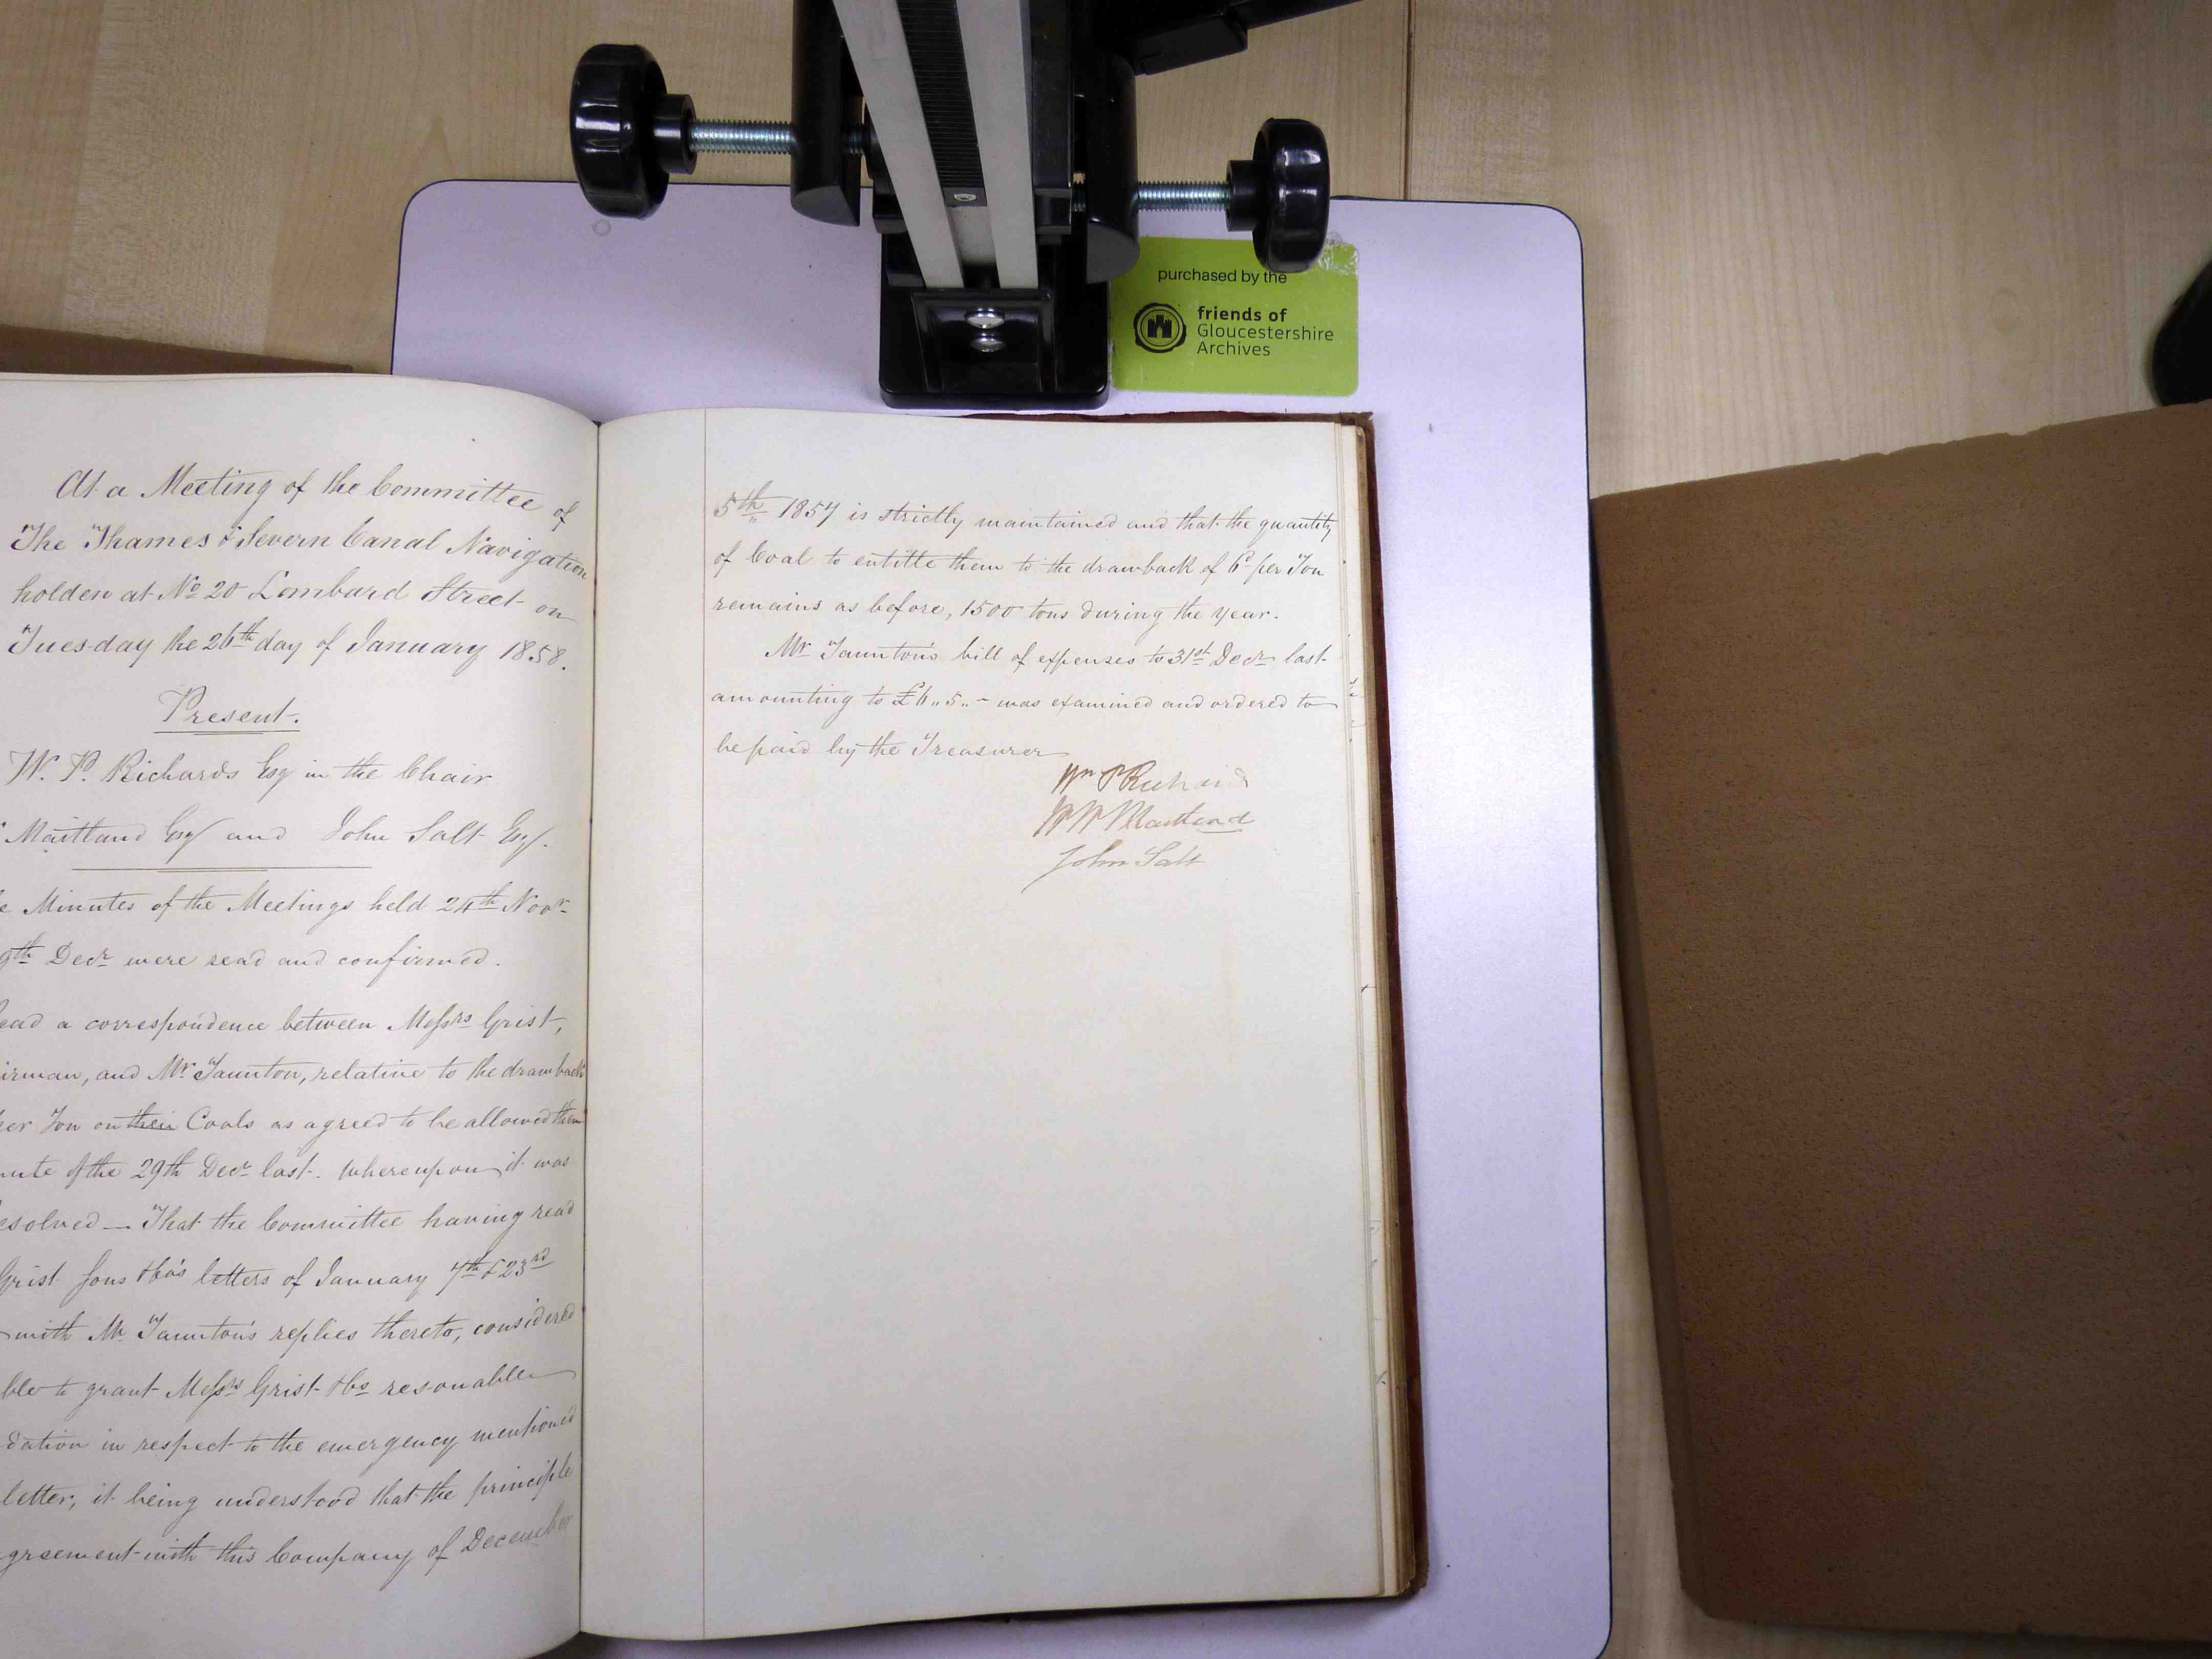 purchased by the
friends of
Gloucestershire
Archives
At a Meeting of the Committee of
The Thames & Severn Canal Navigation
holden at No 20 Lombard Street on
Tuesday the 26th day of January 1858.
Present.
W. P. Richards Esq in the Chair
Maitland Esq and John Salt Esq.
Minutes of the Meetings held 24th Novr
9th Decr were read and confirmed.
ead a correspondence between Messrs Grist,
irman, and Mr Taunton, relative to the drawback
er Ton on their Coals as agreed to be allowed them
nute of the 29th Decr last. Whereupon it was
esolved — That the Committee having read
Grist Sons & Co's letters of January 7th & 23rd
with Mr Taunton's replies thereto, considered
ble to grant Messrs Grist & Co resonable
dation in respect to the emergency mentioned
letter, it being understood that the principle
greement with this Company of December
5th 1857 is strictly maintained and that the quantity
of Coal to entitle them to the drawback of 6d per Ton
remains as before, 1500 tons during the year.
Mr Taunton's bill of expenses to 31st Decr last
amounting to £6,,5,,- was examined and ordered to
be paid by the Treasurer
Wm P Richards
Maitland
John Salt